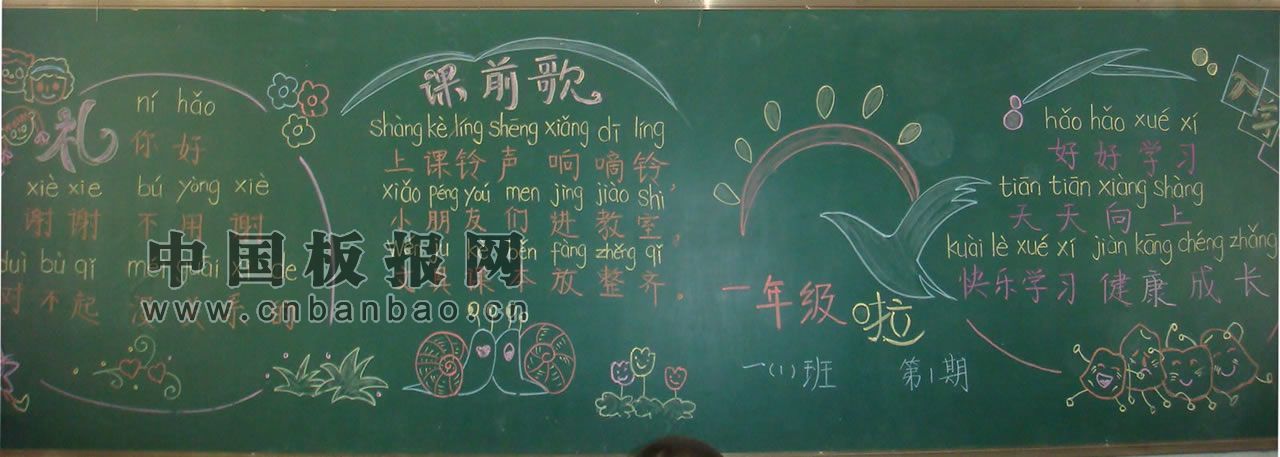 礼
ní hǎo
你 好
xiè xie bú yòng xiè
谢 谢 不 用 谢
duì bù qǐ
对 不 起
课前歌
shàng kè líng shēng xiǎng dī líng
上 课 铃 声 响 嘀 铃,
xiǎo péng yǒu men jìng jiào shì
小 朋 友 们 进 教 室,
běn fàng zhěng qí
本 放 整 齐.
一年级啦
一(1)班 第1期
hǎo hǎo xué xí
好 好 学 习
tiān tiān xiàng shàng
天 天 向 上
kuài lè xué xí jiàn kāng chéng zhǎng
快乐学习 健康成长
入学
中国板报网
www.cnbanbao.cn